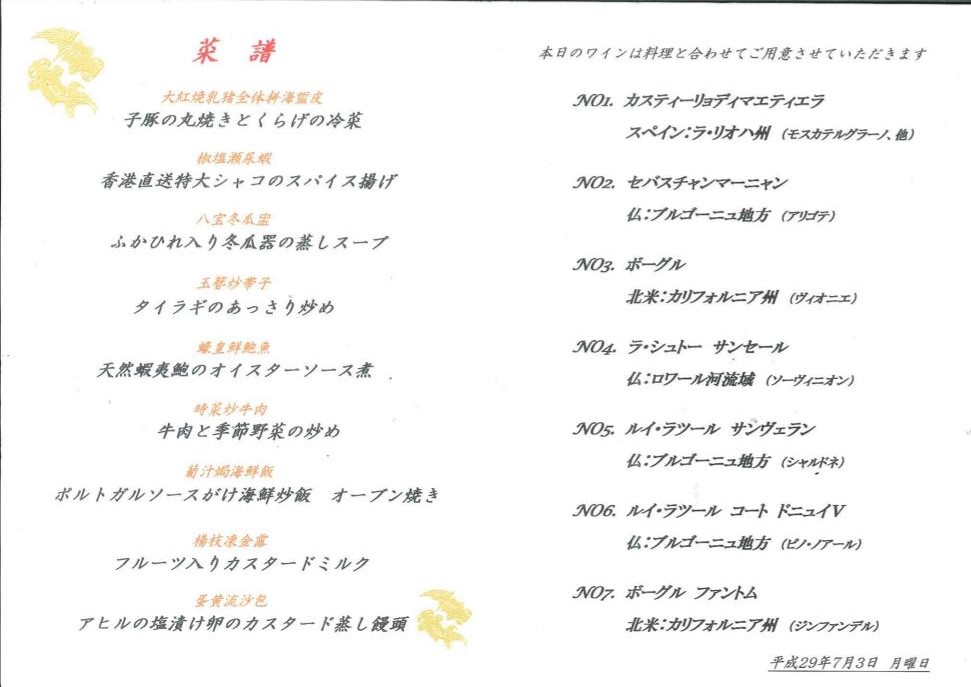 菜 譜
大紅焼乳猪全体拼海蜇皮
子豚の丸焼きとくらげの冷菜
椒塩瀬尿蝦
香港直送特大シャコのスパイス揚げ
八宝冬瓜盅
ふかひれ入り冬瓜器の蒸しスープ
玉簪炒帯子
タイラギのあっさり炒め
蠔皇鮮鮑魚
天然蝦夷鮑のオイスターソース煮
時菜炒牛肉
牛肉と季節野菜の炒め
葡汁焗海鮮飯
ポルトガルソースがけ海鮮炒飯 オーブン焼き
楊枝凍金露
フルーツ入りカスタードミルク
蛋黄流沙包
アヒルの塩漬け卵のカスタード蒸し饅頭
本日のワインは料理と合わせてご用意させていただきます
NO1. カスティーリョディマエティエラ
スペイン:ラ・リオハ州 (モスカテルグラーノ、他)
NO2. セバスチャンマーニャン
仏:ブルゴーニュ地方 (アリゴテ)
NO3. ボーグル
北米:カリフォルニア州 (ヴィオニエ)
NO4. ラ・シュトー サンセール
仏:ロワール河流域 (ソーヴィニオン)
NO5. ルイ・ラツール サンヴェラン
仏:ブルゴーニュ地方 (シャルドネ)
NO6. ルイ・ラツール コート ドニュイV
仏:ブルゴーニュ地方 (ピノ・ノアール)
NO7. ボーグル ファントム
北米:カリフォルニア州 (ジンファンデル)
平成29年7月3日 月曜日